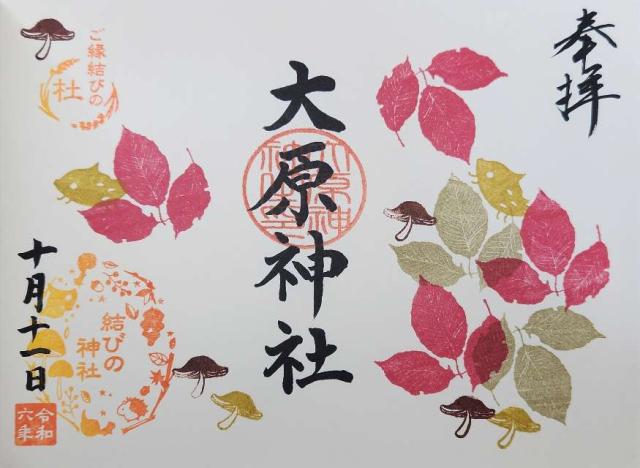 奉拝
大原神社
ご縁結びの
杜
結びの
神社
十月十一日
令和
六年